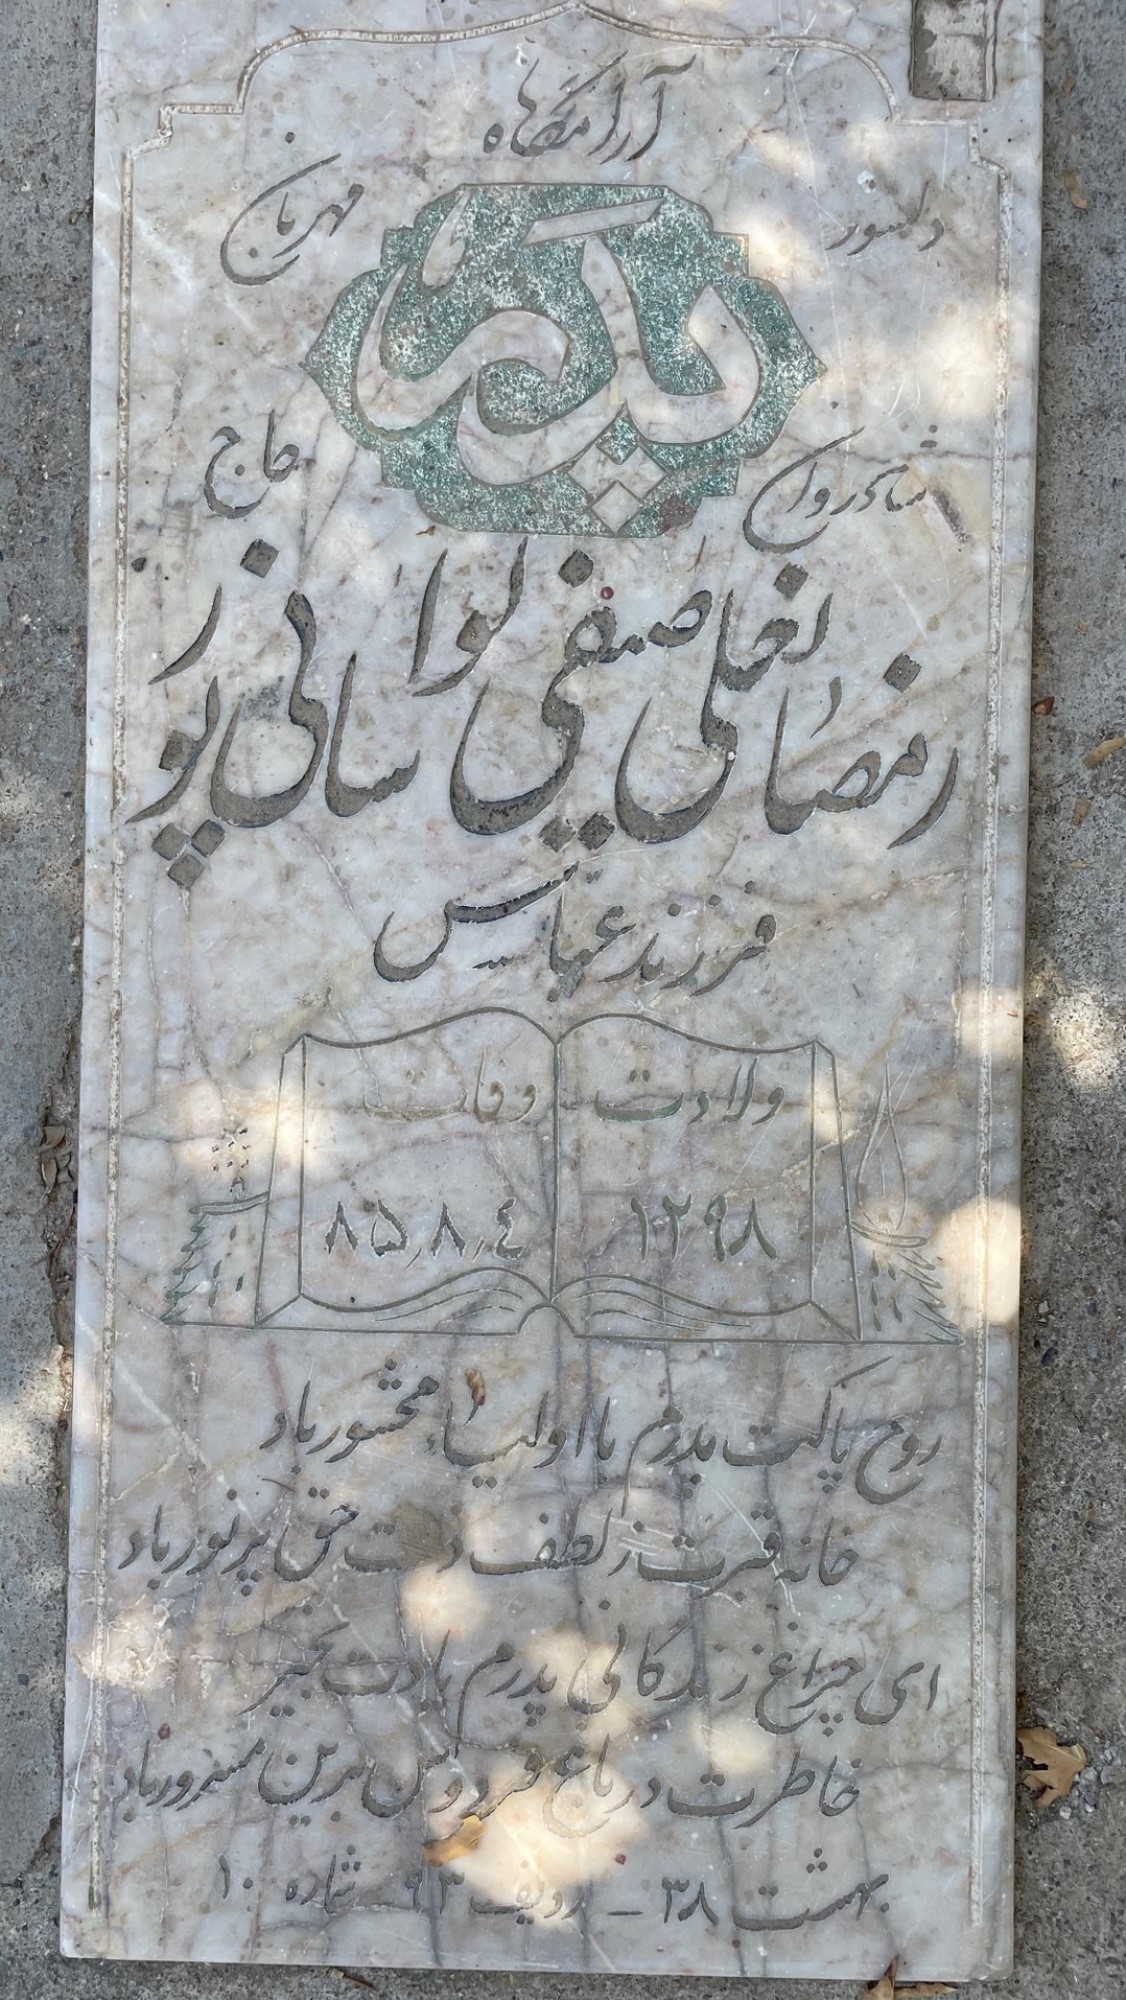 آرامگاه
دلسوز مهربان
شادروان حاج
رمضانعلی صیفی لواسانی پور
فرزند عباس
ولادت وفات
۱۲۹۸ ۸۵٫۸٫٤
روح پاکت پدرم با اولیاء محشور باد
خانه قبرت ز لطف ذات حق پر نور باد
ای چراغ زندگانی پدرم یادت بخیر
خاطرت در باغ فردوس برین مسرور باد
بهشت ۳۸ ـ ردیف ۹۳ ـ شماره ۱۰